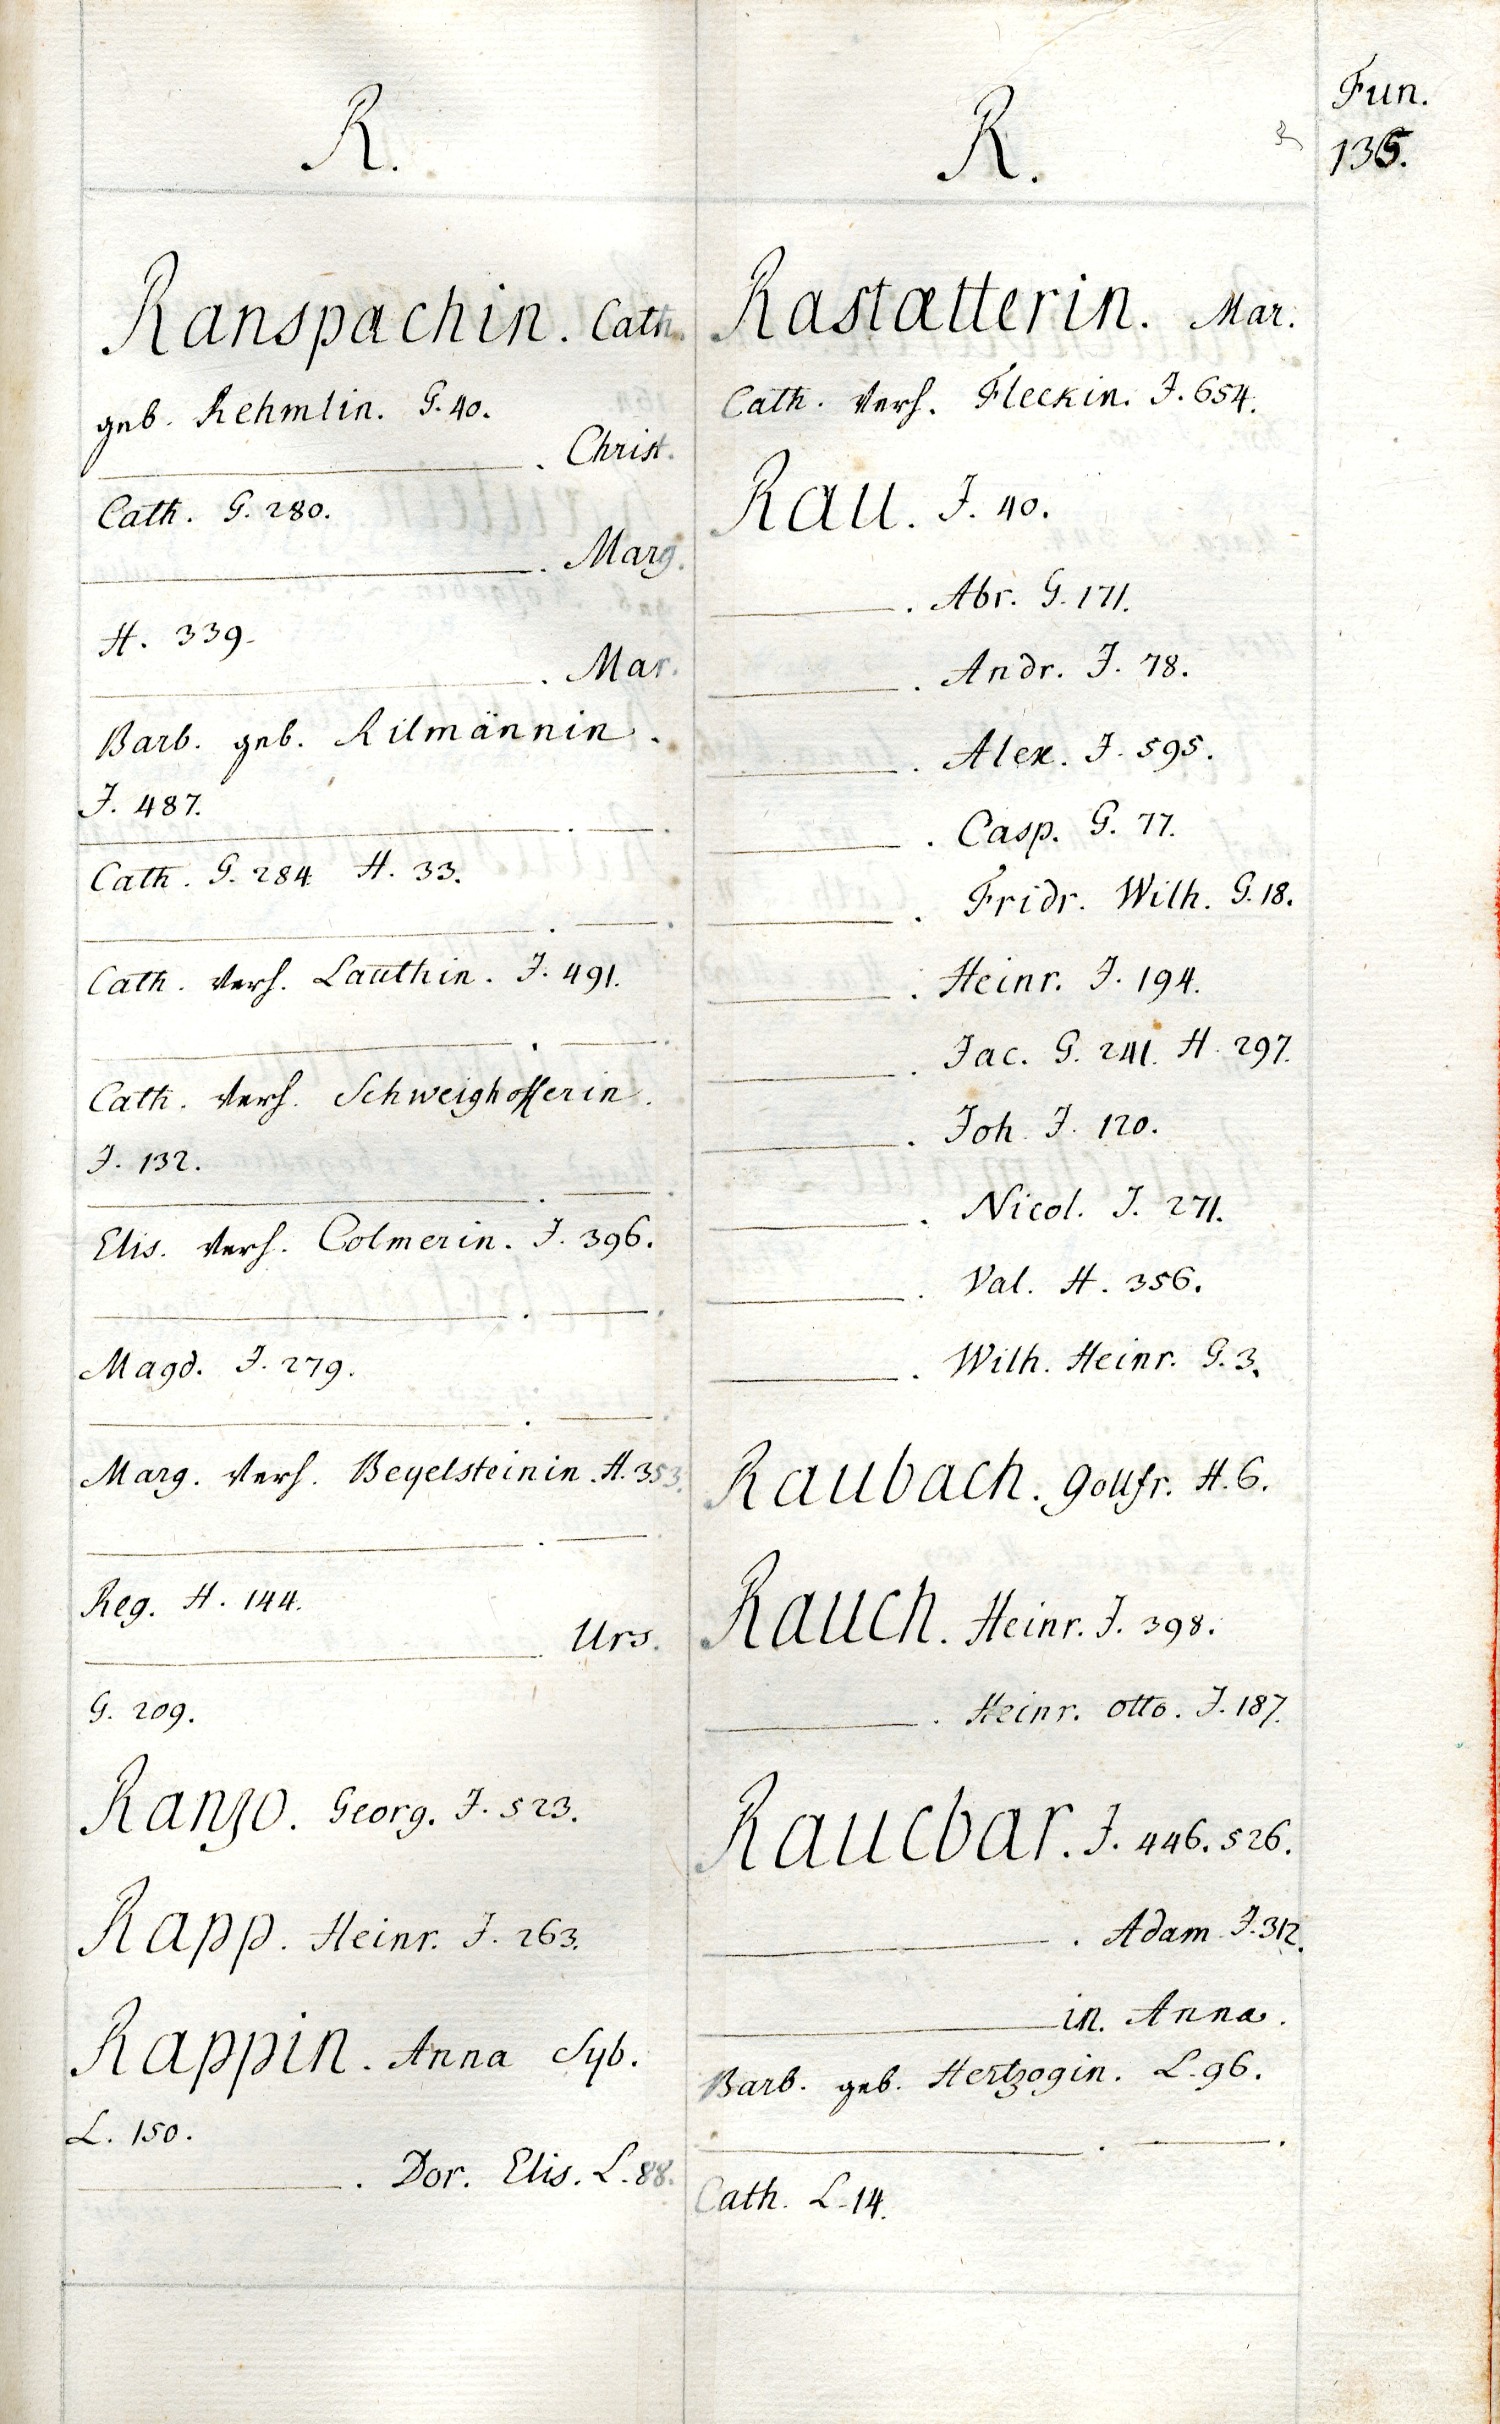 Fun.
135.
R.
Ranspachin. Cath.
geb. Rehmlin. G. 40.
. Christ.
Cath. G. 280.
. Marg.
H. 339.
. Mar.
Barb. geb. Rilmännin.
J. 487.
Cath. G. 284 H. 33.
Cath. verh. Lauthin. J. 491.
Cath. verh. Schweighofferin.
J. 132.
Elis. verh. Colmerin. J. 396.
Magd. J. 279.
Marg. verh. Beyelsteinin. H. 353.
Reg. H. 144.
. Urs.
G. 209.
Ranzo. Georg. J. 523.
Rapp. Heinr. J. 263.
Rappin. Anna Syb.
L. 150.
. Dor. Elis. L. 88.
R.
Rastætterin. Mar.
Cath. verh. Fleckin. J. 654.
Rau. J. 40.
. Abr. G. 171.
. Andr. J. 78.
. Alex. J. 595.
. Casp. G. 77.
. Fridr. Wilh. G. 18.
. Heinr. J. 194.
. Jac. G. 241. H. 297.
. Joh. J. 120.
. Nicol. J. 271.
. Val. H. 356.
. Wilh. Heinr. G. 3.
Raubach. Gottfr. H. 6.
Rauch. Heinr. J. 398.
. Heinr. Otto. J. 187.
Raucbar. J. 446. 526.
. Adam J. 312.
in. Anna.
Barb. geb. Hertzogin. L. 96.
Cath. L. 14.